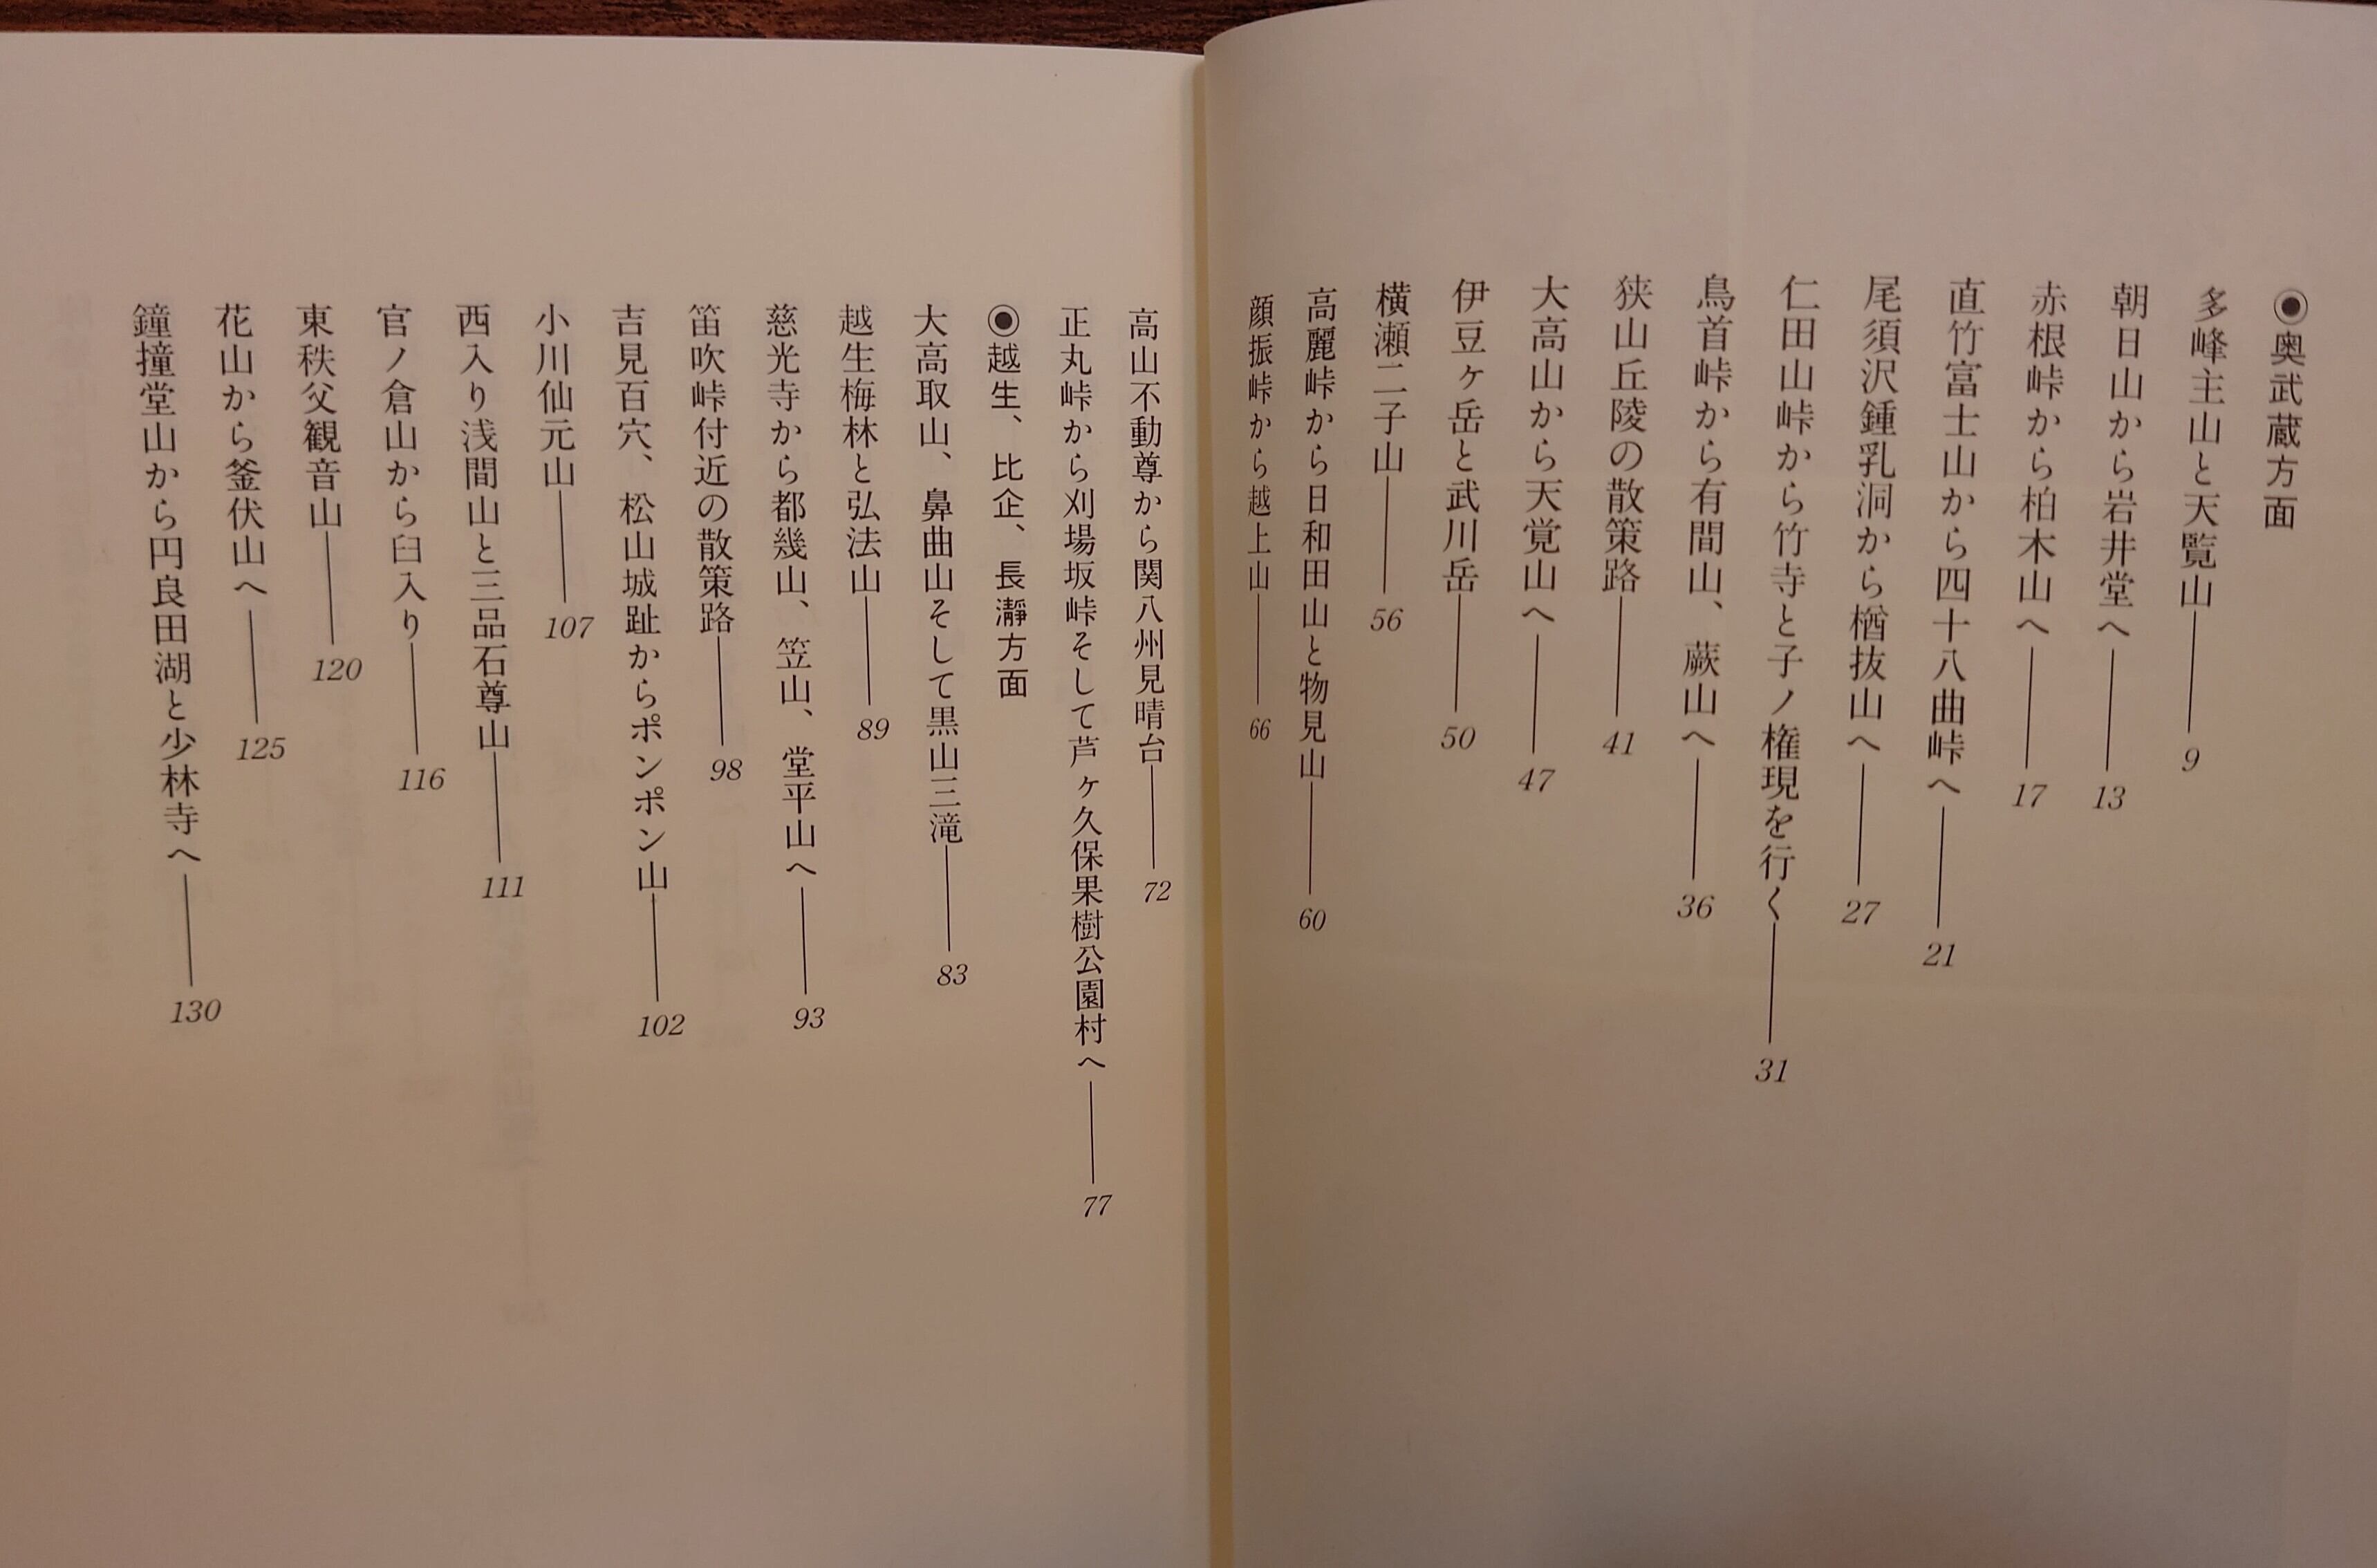 ◉奥武蔵方面
多峰主山と天覧山――9
朝日山から岩井堂へ――13
赤根峠から柏木山へ――17
直竹富士山から四十八曲峠へ――21
尾須沢鍾乳洞から楢抜山へ――27
仁田山峠から竹寺と子ノ権現を行く――31
鳥首峠から有間山、蕨山へ――36
狭山丘陵の散策路――41
大高山から天覚山へ――47
伊豆ヶ岳と武川岳――50
横瀬二子山――56
高麗峠から日和田山と物見山――60
顔振峠から越上山――66
高山不動尊から関八州見晴台――72
正丸峠から刈場坂峠そして芦ヶ久保果樹公園村へ――77
◉越生、比企、長瀞方面
大高取山、鼻曲山そして黒山三滝――83
越生梅林と弘法山――89
慈光寺から都幾山、笠山、堂平山へ――93
笛吹峠付近の散策路――98
吉見百穴、松山城趾からポンポン山――102
小川仙元山――107
西入り浅間山と三品石尊山――111
官ノ倉山から臼入り――116
東秩父観音山――120
花山から釜伏山へ――125
鐘撞堂山から円良田湖と少林寺へ――130